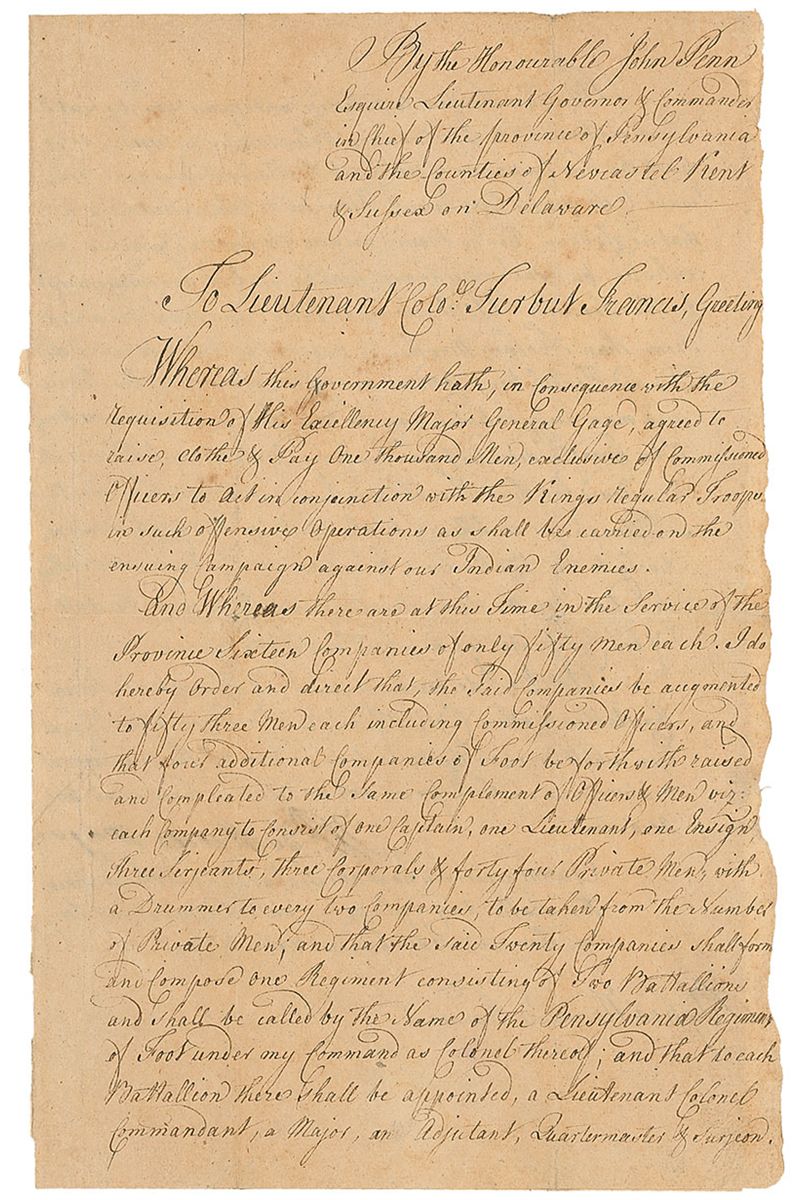 By the Honourable John Penn
Esquire Lieutenant Governor & Commander
in Chief of the province of Pensylvania
and the Counties of Newcastel Kent
& Sussex on Delaware
To Lieutenant Colo.ll Turbut Francis, Greeting
Whereas this Government hath, in Consequence with the
requisition of His Excellency Major General Gage, agreed to
raise, clothe & Pay One thousand Men, exclusive of Commissioned
Officers to Act in conjunction with the Kings regular Troops
in such offensive Operations as shall be carried on the
ensuing Campaign against our Indian Enemies.
And Whereas there are at this Time in the Service of the
Province Sixteen Companies of only fifty Men each. I do
hereby Order and direct that, the Said Companies be augmented
to fifty three Men each including Commissioned Officers, and
that four additional Companies of Foot be forthwith raised
and Compleated to the Same Complement of Officers & Men viz:
each Company to Consist of one Captain, one Lieutenant, one Ensign,
three Serjeants, three Corporals & forty four Private Men, with
a Drummer to every two Companies, to be taken from the Number
of Private Men; and that the said Twenty Companies shall form
and Compose one Regiment consisting of Two Battallions
and shall be called by the Name of the Pensylvania Regiment
of Foot under my Command as Colonel thereof; and that to each
Battallion there shall be appointed, a Lieutenant Colonel
Commandant, a Major, an Adjutant, Quartermaster & Surjeon.